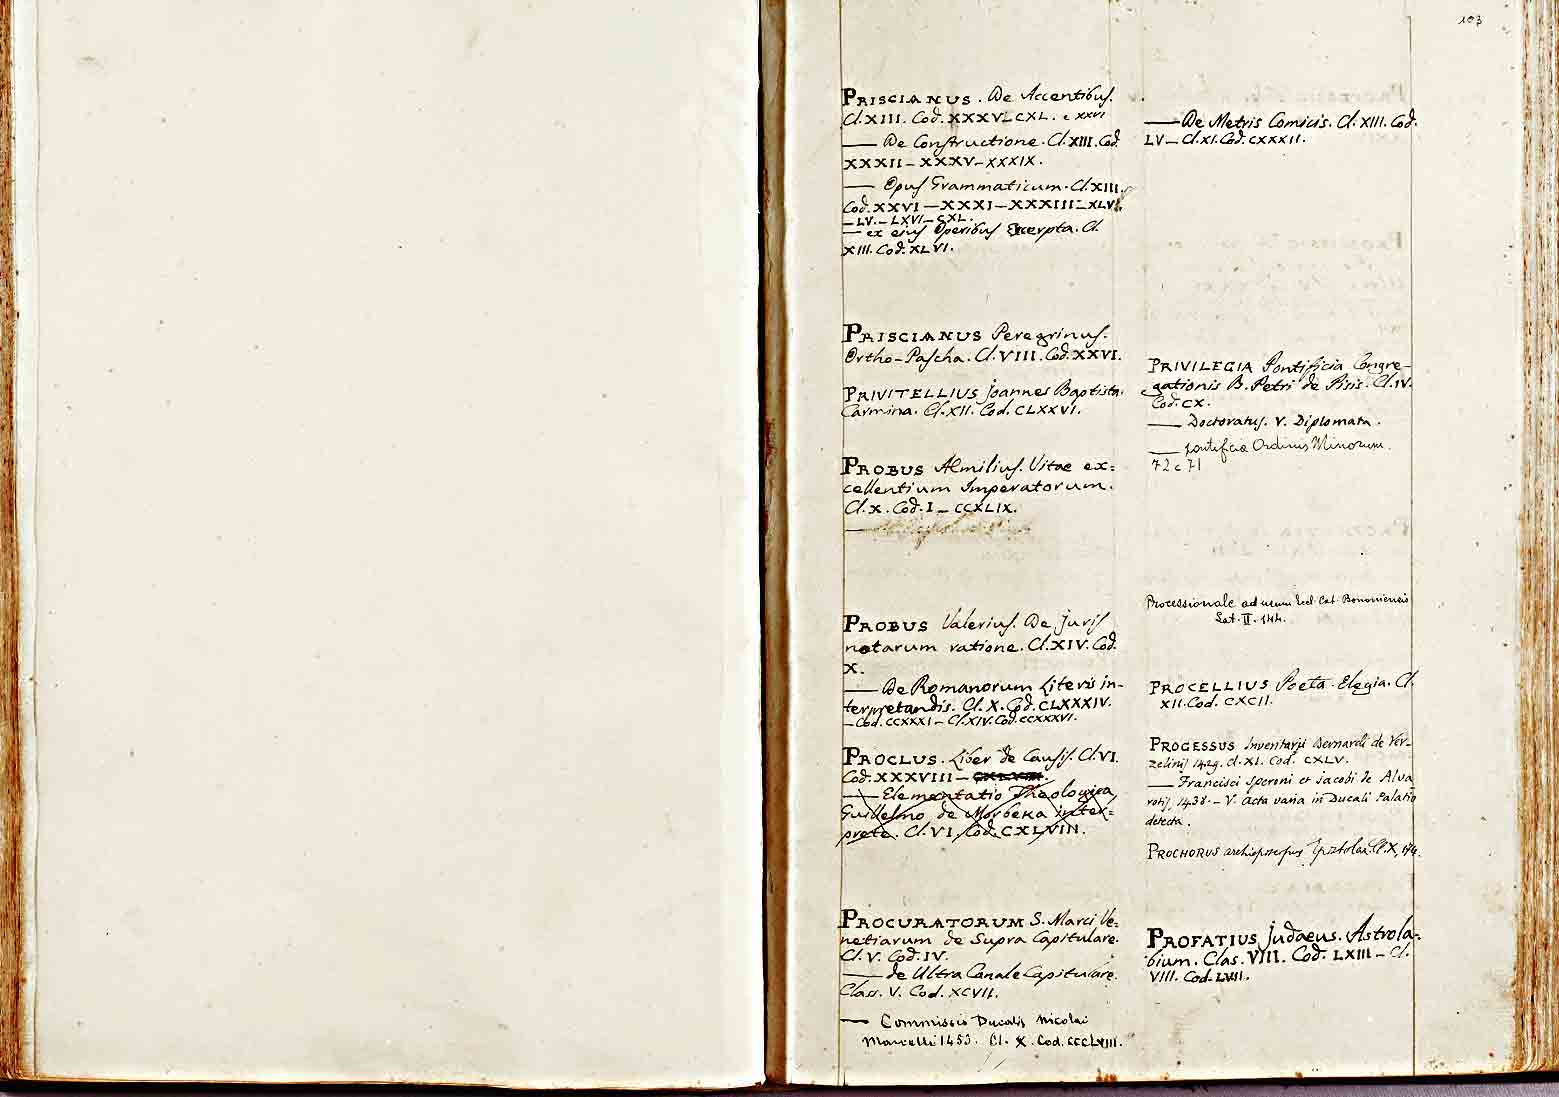 103
PRISCIANUS. De Accentibus.
Cl. XIII. Cod. XXXV_CXL. e XXVI
—— De Constructione. Cl. XIII. Cod.
XXXII_XXXV_XXXIX.
—— Opus Grammaticum. Cl. XIII.
Cod. XXVI—XXXI—XXXIII_XLVI.
_LV._LXVI_CXL.
— ex ejus Operibus Excerpta. Cl.
XIII. Cod. XLVI.
PRISCIANUS Peregrinus.
Ortho-Pascha. Cl. VIII. Cod. XXVI.
PRIVITELLIUS Joannes Baptista.
Carmina. Cl. XII. Cod. CLXXVI.
PROBUS Æmilius. Vitae ex=
cellentium Imperatorum.
Cl. X. Cod. I_CCXLIX.
—
PROBUS Valerius. De juris
notarum ratione. Cl. XIV. Cod.
X.
—— De Romanorum Literis in-
terpretandis. Cl. X. Cod. CLXXXIV.
_Cod. CCXXXI_Cl. XIV. Cod. CCXXXVI.
PROCLUS. Liber de Causis. Cl. VI.
Cod. XXXVIII_CXLVIII.
—— Elementatio Theologica
Guillelmo de Morbeka inter=
prete. Cl. VI. Cod. CXLVIII.
PROCURATORUM S. Marci Ve=
netiarum de Supra Capitulare.
Cl. V. Cod. IV.
—— de Ultra Canale Capitulare.
Class. V. Cod. XCVII.
— Commissio Ducalis Nicolai
Marcelli 1453. Cl. X. Cod. CCCLVIII.
—— De Metris Comicis. Cl. XIII. Cod.
LV_Cl. XI. Cod. CXXXII.
PRIVILEGIA Pontificia Congre-
gationis B. Petri de Pisis. Cl. IV.
Cod. CX.
—— Doctoratus. V. Diplomata.
—— pontificia Ordinis Minorum.
72 e 71
Processionale ad usum Eccl. Cat. Bononiensis
Lat. II. 144.
PROCELLIUS Poeta. Elegia. Cl.
XII. Cod. CXCII.
PROCESSUS Inventarij Bernardi de Ver-
zelinis 1429. Cl. XI. Cod. CXLV.
—— Francisci Speroni et Jacobi de Alva
rotis, 1438._V. Acta varia in Ducali Palatio
detecta.
PROCHORUS archiepiscopus Epistolae. Cl. X, 174.
PROFATIUS Judaeus. Astrola=
bium. Clas. VIII. Cod. LXIII_Cl.
VIII. Cod. LVII.